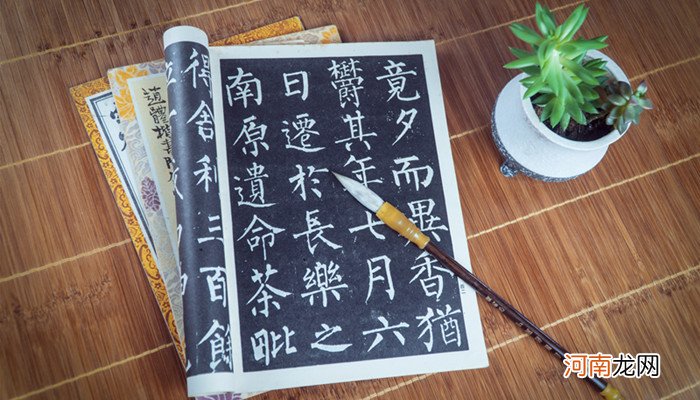 竟夕而異香猶
鬱其年七月六
日遷於長樂之
南原遺命茶毗
得舍利三百餘
河南龙网